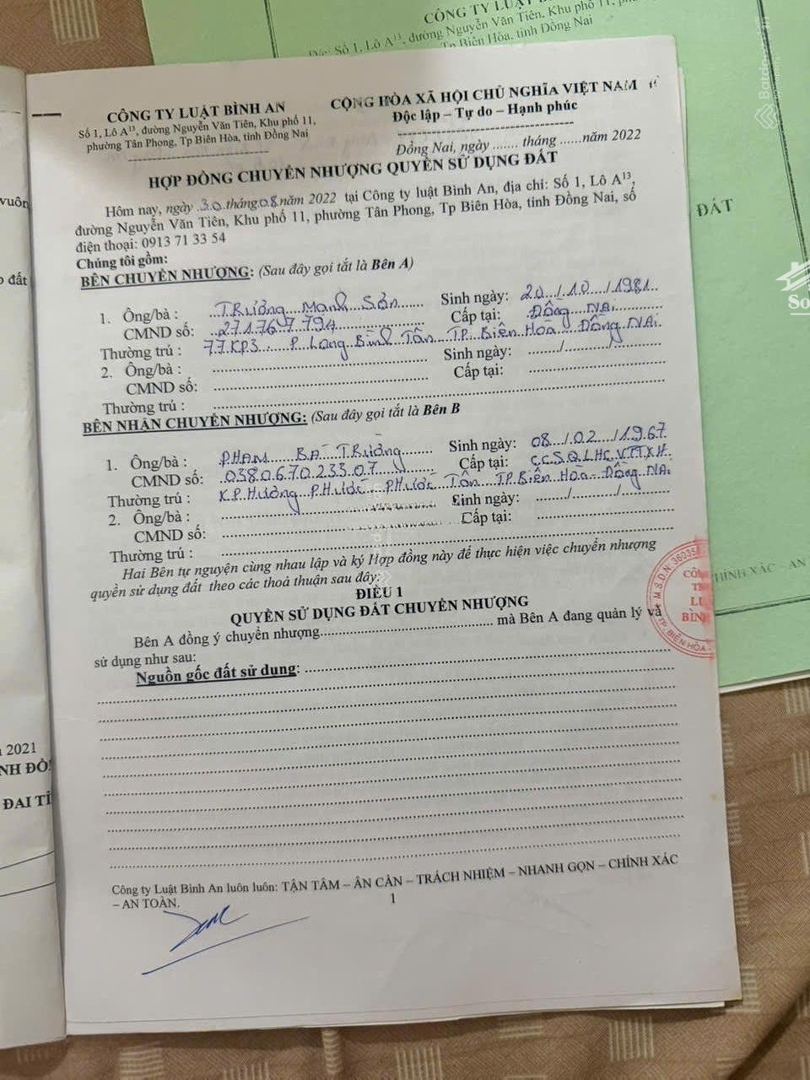 CÔNG TY LUẬT B
Số 1, Lô A13, đường Nguyễn Văn Tiên, Khu phố 11,
Tp Biên Hòa, tỉnh Đồng Nai
CÔNG TY LUẬT BÌNH AN
Số 1, Lô A13, đường Nguyễn Văn Tiên, Khu phố 11,
phường Tân Phong, Tp Biên Hòa, tỉnh Đồng Nai
CỘNG HÒA XÃ HỘI CHỦ NGHĨA VIỆT NAM
Độc lập – Tự do – Hạnh phúc
Đồng Nai, ngày ....... tháng ......năm 2022
HỢP ĐỒNG CHUYỂN NHƯỢNG QUYỀN SỬ DỤNG ĐẤT
Hôm nay, ngày 30 tháng 08 năm 2022 tại Công ty luật Bình An, địa chỉ: Số 1, Lô A13,
đường Nguyễn Văn Tiên, Khu phố 11, phường Tân Phong, Tp Biên Hòa, tỉnh Đồng Nai, số
điện thoại: 0913 71 33 54
Chúng tôi gồm:
BÊN CHUYỂN NHƯỢNG: (Sau đây gọi tắt là Bên A)
1. Ông/bà : Trương Mạnh Sơn Sinh ngày: 20/10/1981
CMND số: 271767794 Cấp tại: Đồng Nai
Thường trú : 77 KP3 P Long Bình Tân TP Biên Hoà Đồng Nai
2. Ông/bà : Sinh ngày: ....../....../......
CMND số: Cấp tại:
Thường trú :
BÊN NHẬN CHUYỂN NHƯỢNG: (Sau đây gọi tắt là Bên B
1. Ông/bà : PHẠM BÁ TRƯỜNG Sinh ngày: 08/02/1967
CMND số: 038067023307 Cấp tại: CCSQLHCVTTXH
Thường trú : KP Hương Phước Phước Tân TP Biên Hòa Đồng Nai
2. Ông/bà : Sinh ngày: ....../....../......
CMND số: Cấp tại:
Thường trú :
Hai Bên tự nguyện cùng nhau lập và ký Hợp đồng này để thực hiện việc chuyển nhượng
quyền sử dụng đất theo các thoả thuận sau đây:
ĐIỀU 1
QUYỀN SỬ DỤNG ĐẤT CHUYỂN NHƯỢNG
Bên A đồng ý chuyển nhượng.......................................... mà Bên A đang quản lý và
sử dụng như sau:
Nguồn gốc đất sử dụng:
Công ty Luật Bình An luôn luôn: TẬN TÂM – ÂN CẦN – TRÁCH NHIỆM – NHANH GỌN – CHÍNH XÁC
– AN TOÀN.
1
vuôn
đất
2021
ĐAI
ĐẤT
HÍNH XÁC – AN
M.S.D.N
TP. BIÊN HÒA
Batdongsan
So